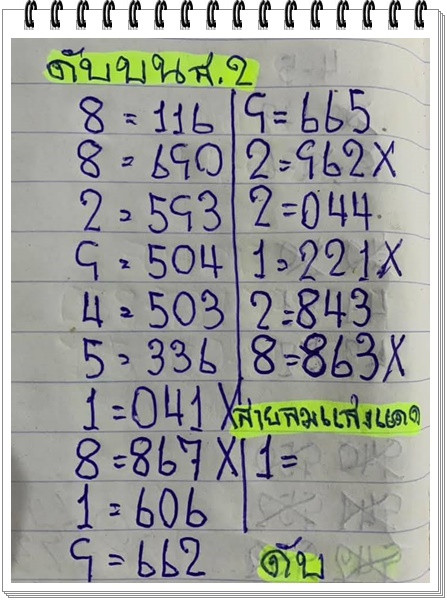 ดับบนส.2
8=116
8=690
2=593
9=504
4=503
5=336
1=041X
8=867X
1=606
9=662
9=665
2=962X
2=044
1=221X
2=843
8=863X
สายลมแสงแดด
1=
ดับ